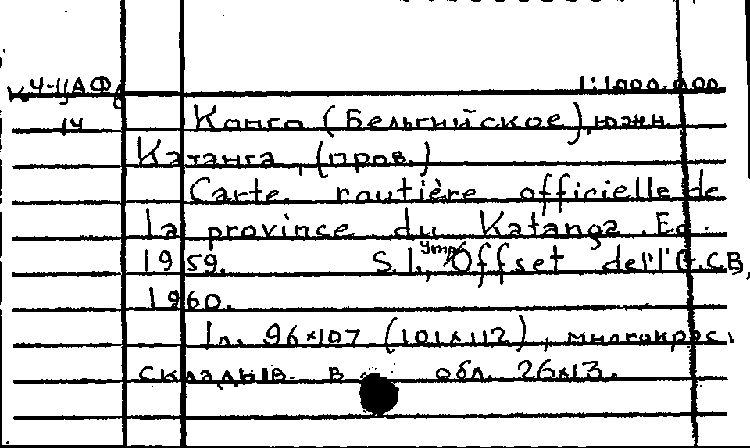 К 4-ЦАФ/ 1:1000.000
14 Конго (Бельгийское), южн.
Катанга, (пров.)
Carte routière officielle de
la province du Katanga. Ed.
1959. S.l., Offset de l'I.G.C.B,
1960.
1л. 96×107 (101×112), многокрас.,
складыв. в обл. 26×13.